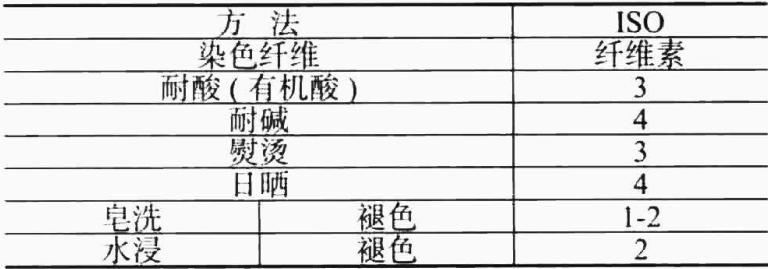 方 法 ISO
染色纤维 纤维素
耐酸(有机酸) 3
耐碱 4
熨烫 3
日晒 4
皂洗 褪色 1-2
水浸 褪色 2